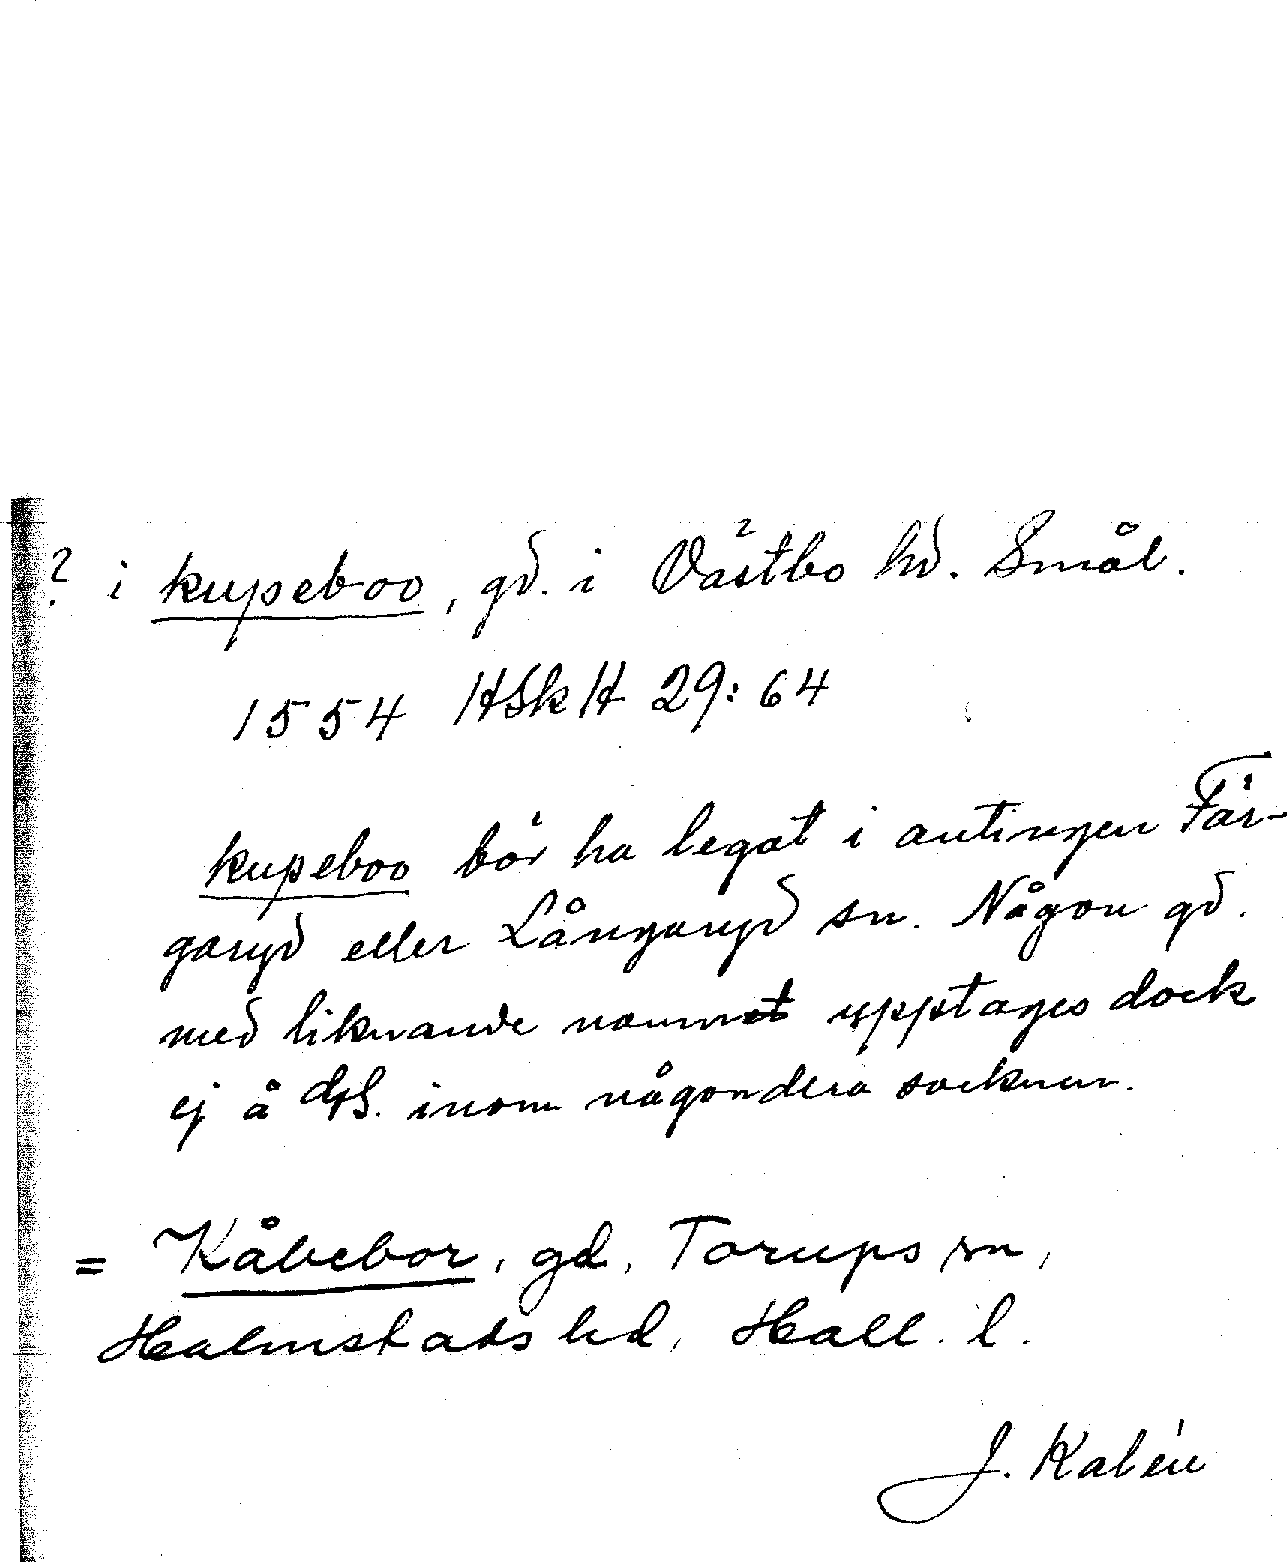 ? i kupeboo, gd. i Västbo hd. Smål.
1554 HSkH 29:64
kupeboo bör ha legat i antingen Fär-
garyd eller Långaryd sn. Någon gd.
med liknande namn upptages dock
ej å inom någondera socknen.
= Kåbebor, gd, Torups sn,
Halmstads hd, Hall. l.
J. Kalén